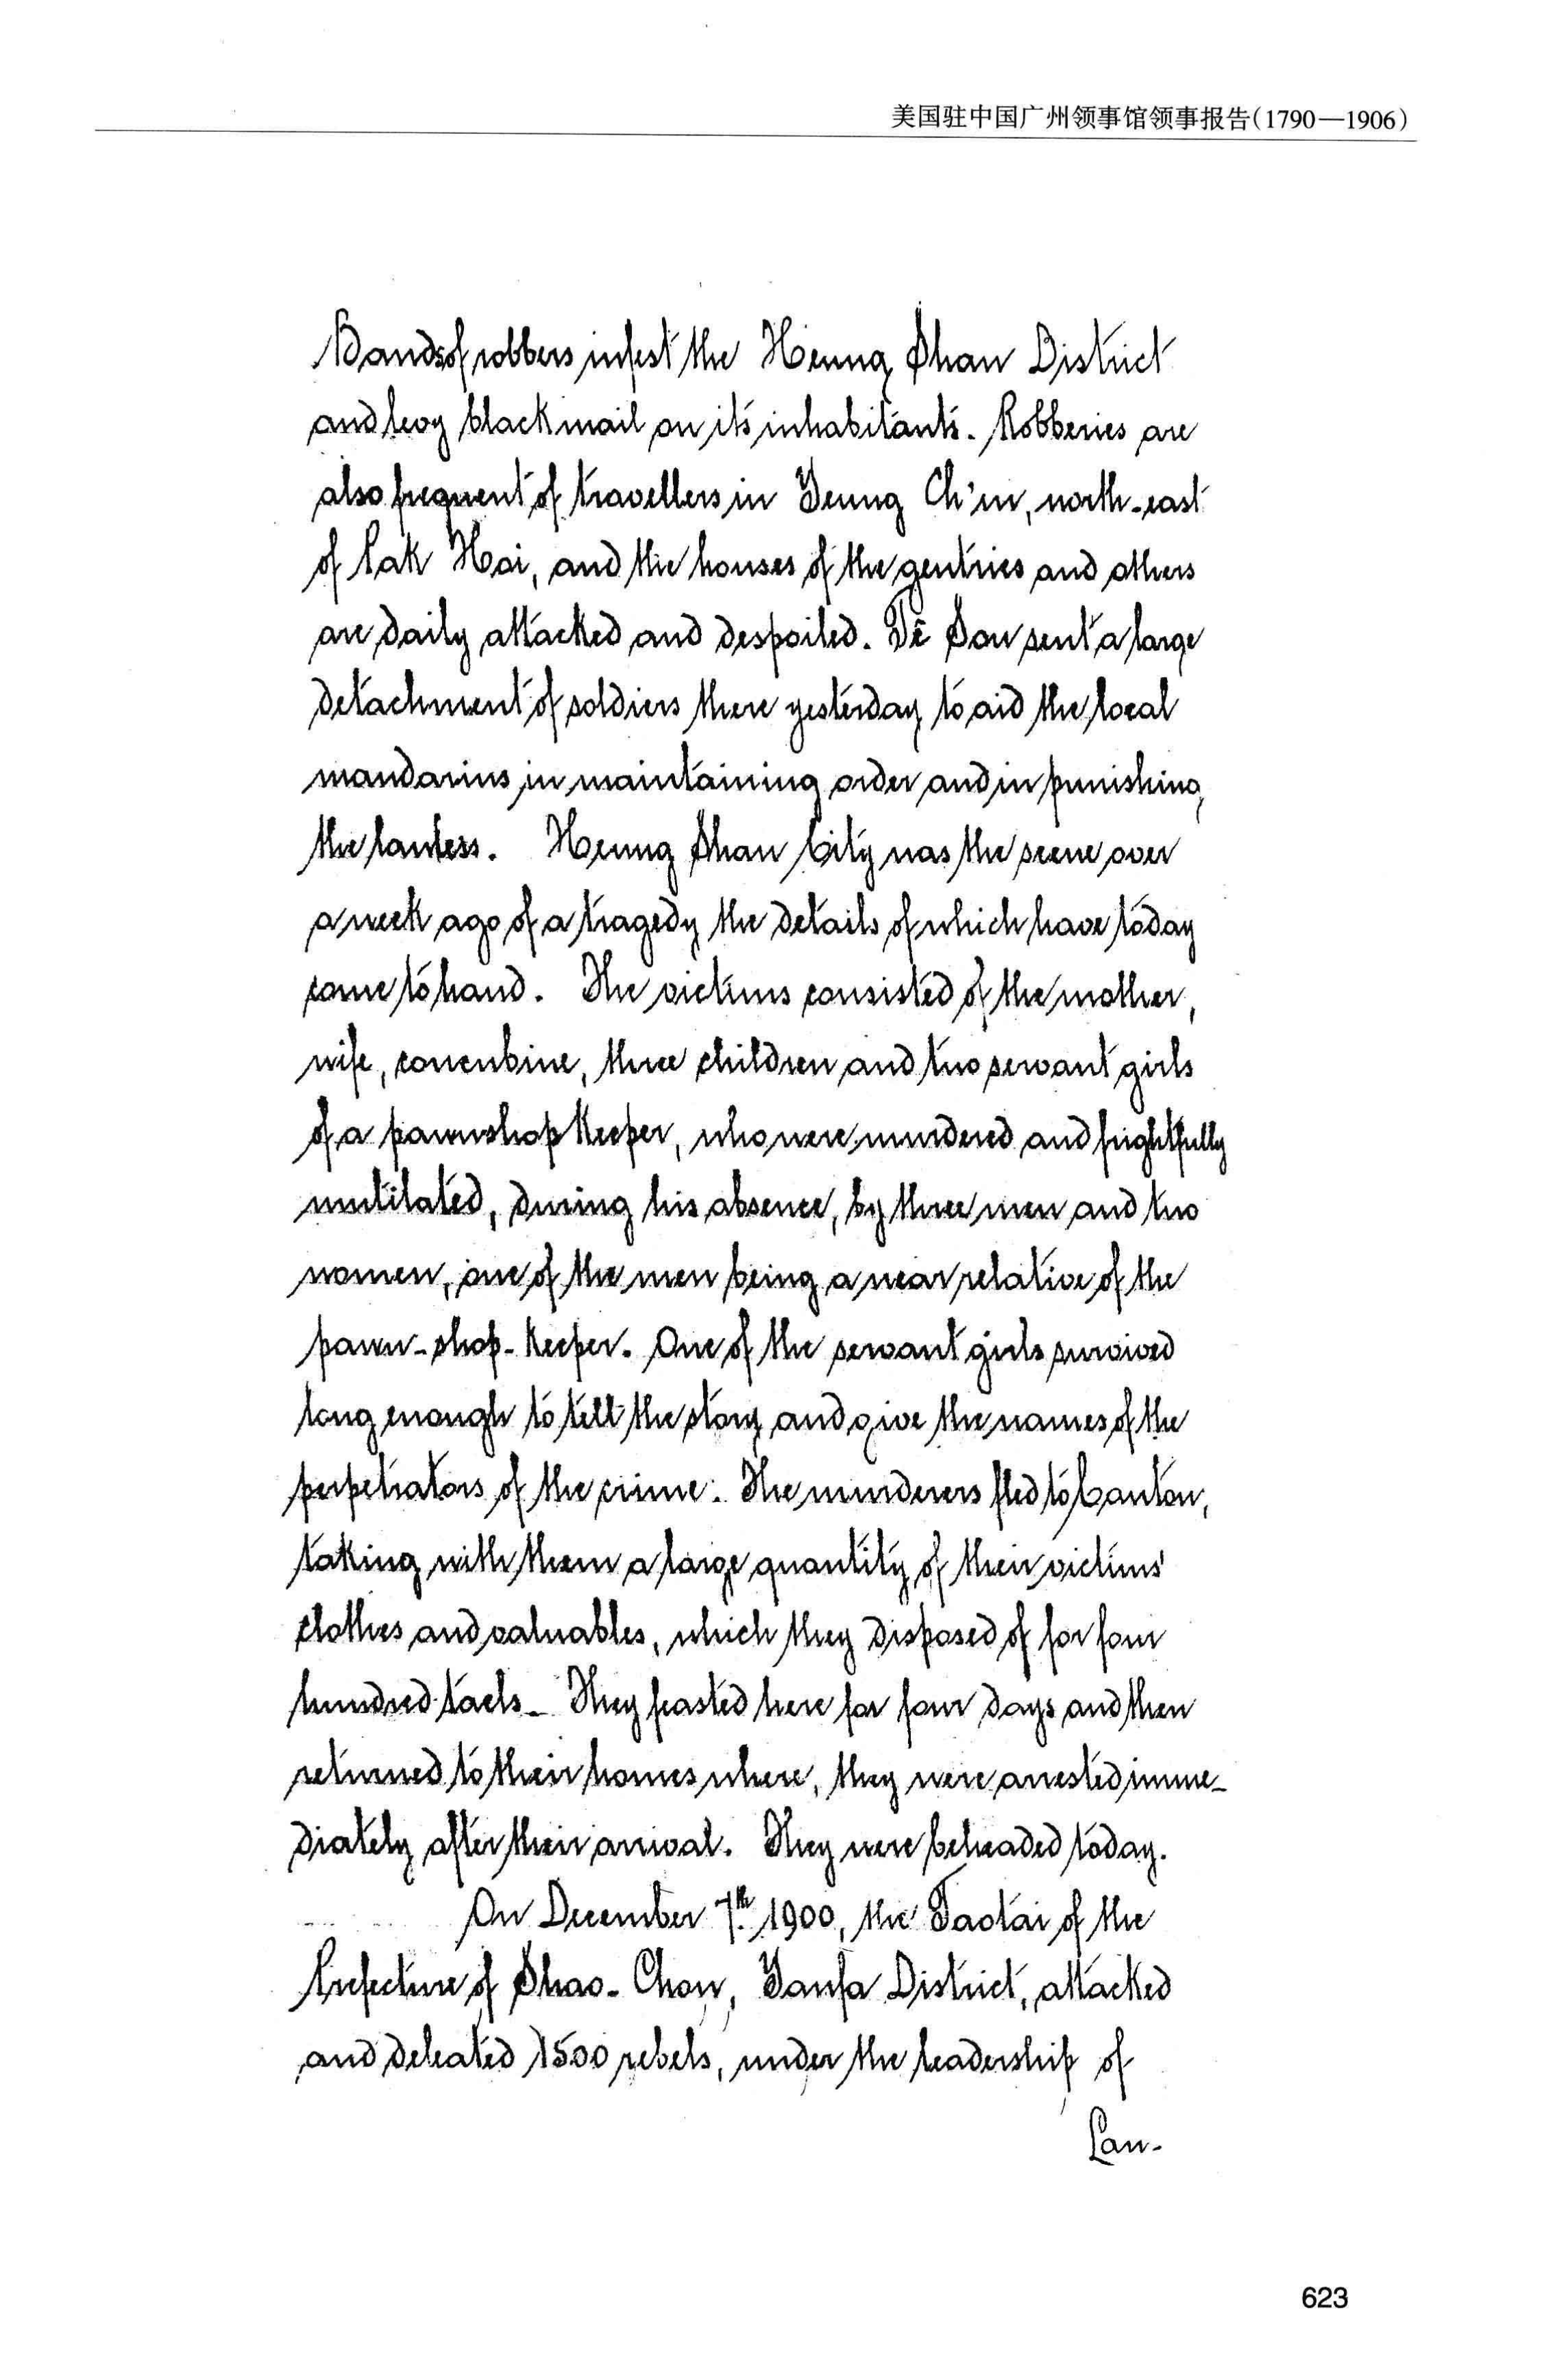 美国驻中国广州领事馆领事报告(1790—1906)
Bands of robbers infest the Heung Shan District
and levy blackmail on its inhabitants. Robberies are
also frequent of travellers in Yeung Ch'un, north-east
of Pak Hoi, and the houses of the gentries and others
are daily attacked and despoiled. Tê Sou sent a large
detachment of soldiers there yesterday to aid the local
mandarins in maintaining order and in punishing
the lawless. Heung Shan City was the scene over
a week ago of a tragedy the details of which have today
come to hand. The victims consisted of the mother,
wife, concubine, three children and two servant girls
of a pawnshop keeper, who were murdered and frightfully
mutilated, during his absence, by three men and two
women, one of the men being a near relative of the
pawn-shop-keeper. One of the servant girls survived
long enough to tell the story and give the names of the
perpetrators of the crime. The murderers fled to Canton,
taking with them a large quantity of their victims'
clothes and valuables, which they disposed of for four
hundred taels_ They feasted here for four days and then
returned to their homes where, they were arrested imme-
diately after their arrival. They were beheaded today.
On December 7th. 1900, the Taotai of the
Prefecture of Shao-Chow, District, attacked
and defeated 1500 rebels, under the leadership of
Lau-
623